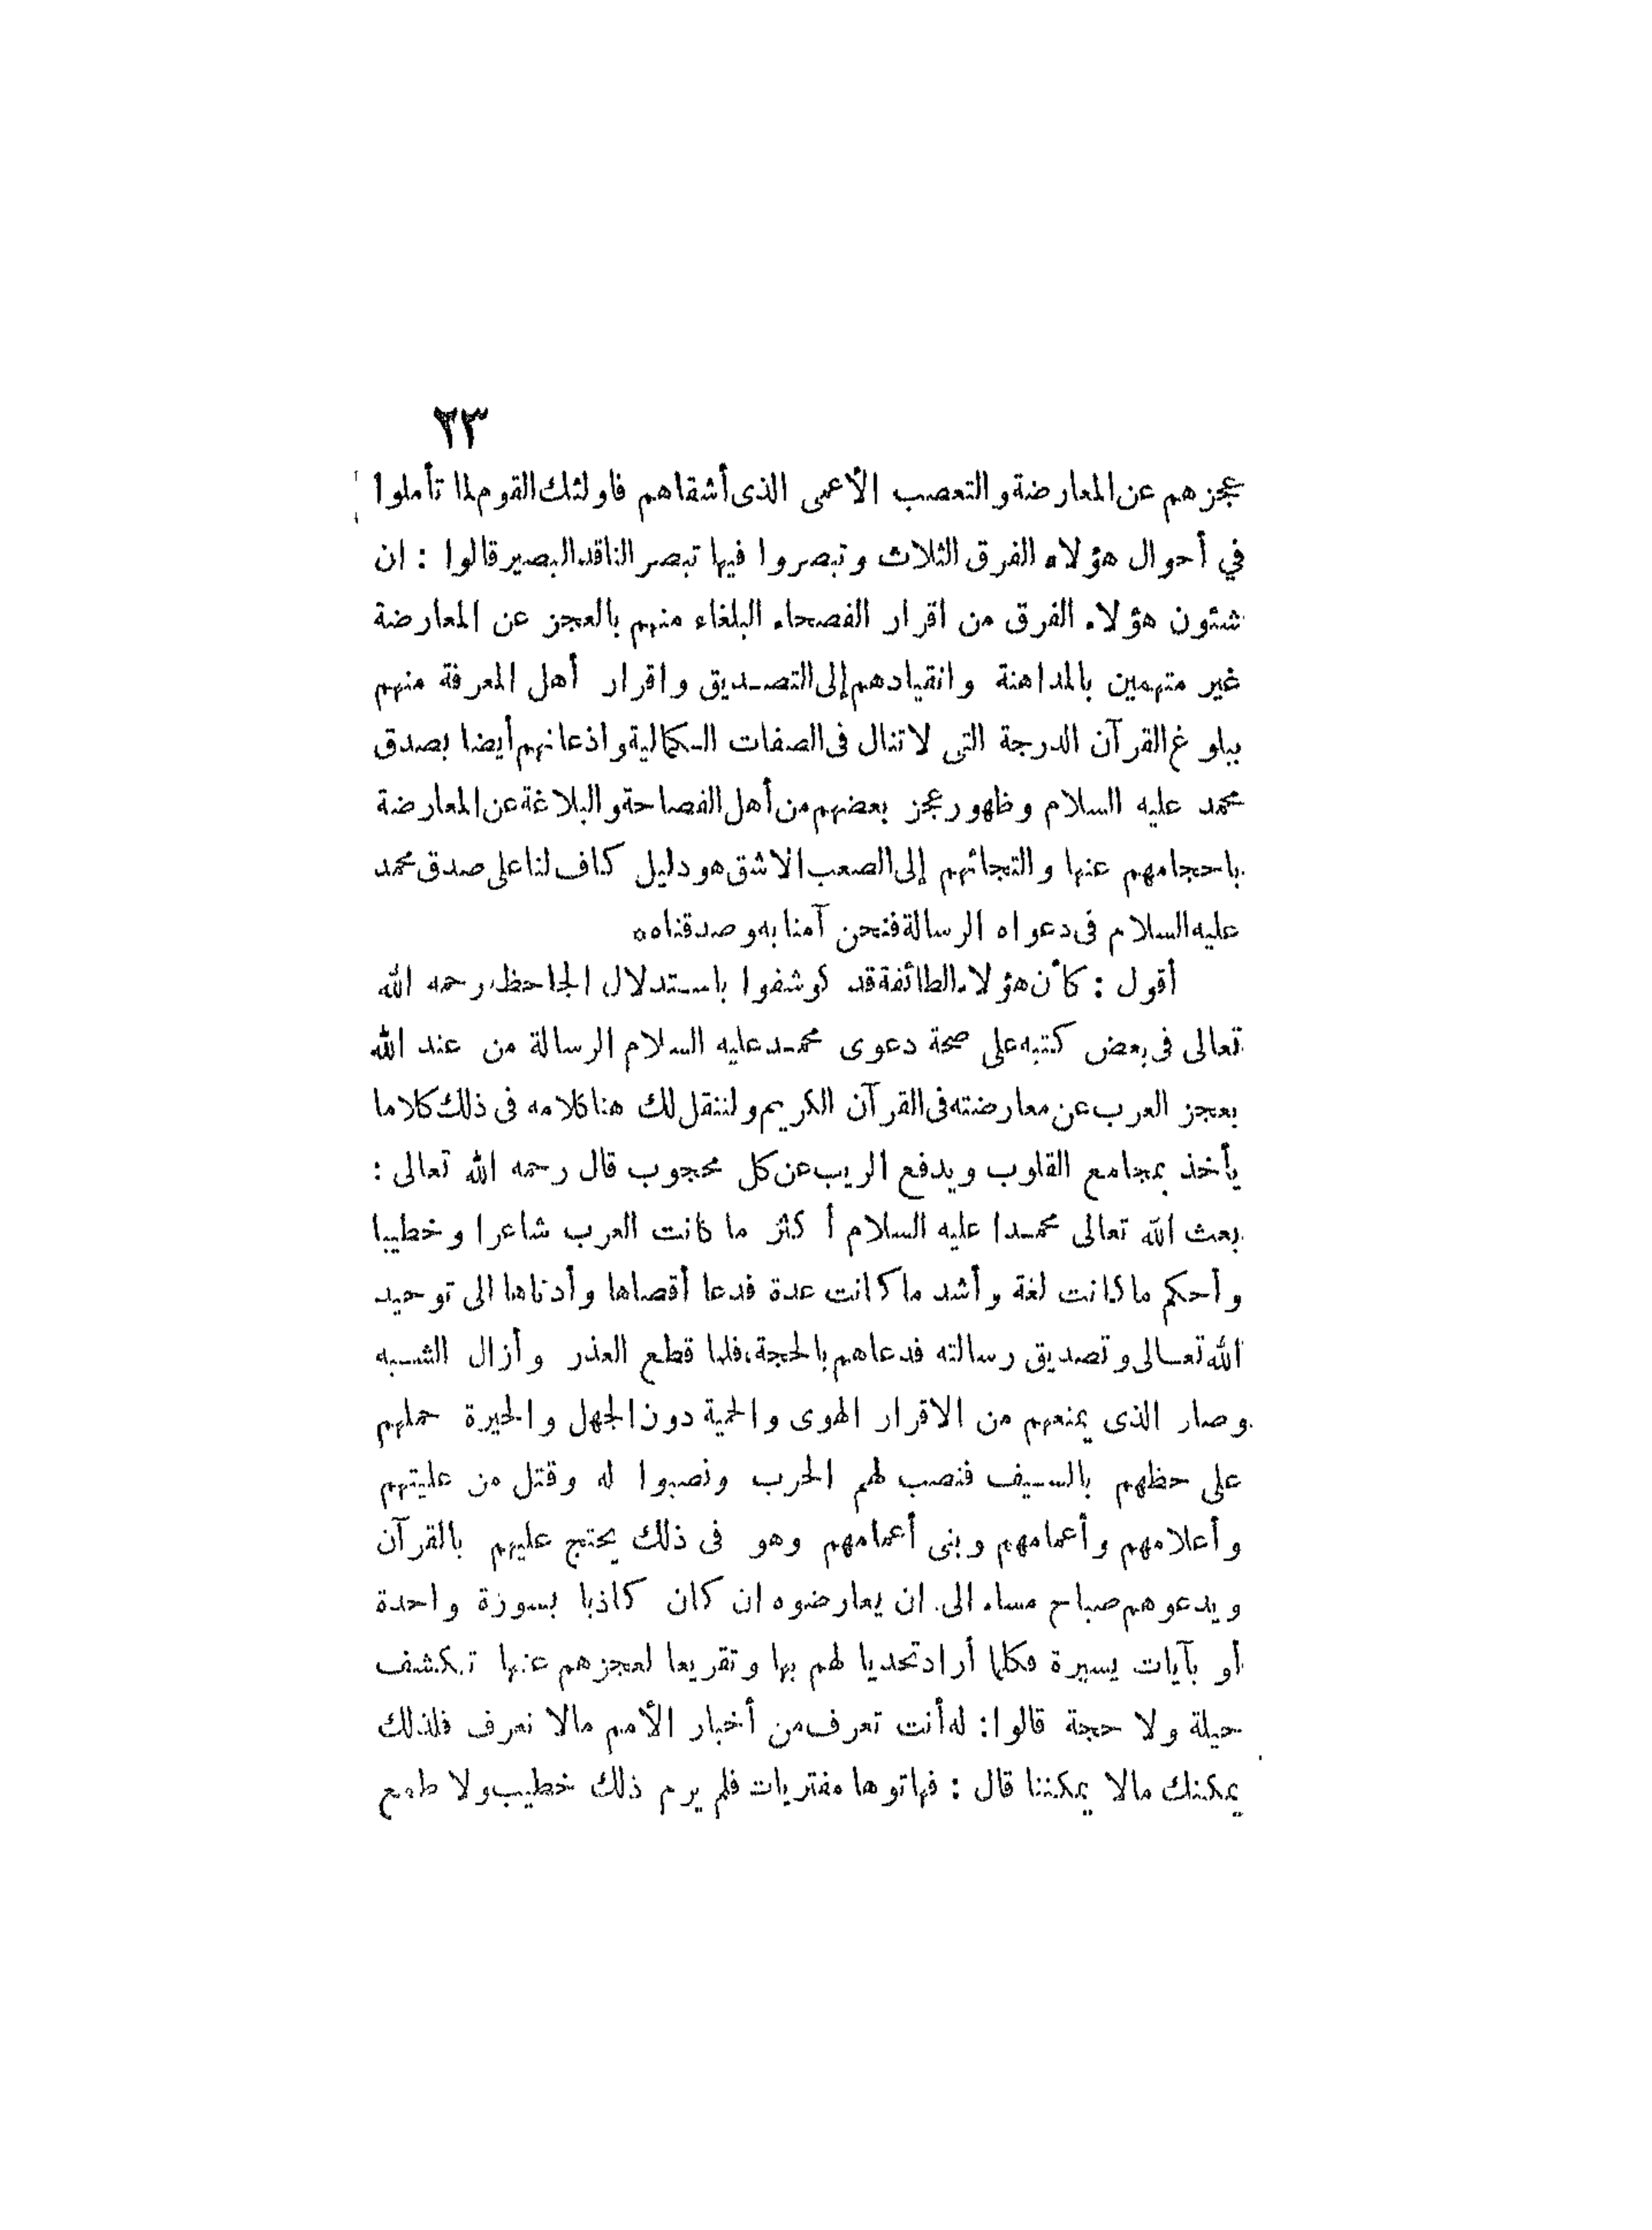 ٢٣
عجزهم عن المعارضة والتعصب الأعمى الذى أشقاهم فاولئك القوم لما تأملوا
في أحوال هؤلاء الفرق الثلاث وتبصروا فيها تبصر الناقد البصير قالوا : ان
شئون هؤلاء الفرق من اقرار الفصحاء البلغاء منهم بالعجز عن المعارضة
غير متهمين بالمداهنة وانقيادهم إلى التصديق واقرار أهل المعرفة منهم
ببلوغ القرآن الدرجة التى لا تنال فى الصفات الكمالية واذعانهم أيضا بصدق
محمد عليه السلام وظهور عجز بعضهم من أهل الفصاحة والبلاغة عن المعارضة
باحجامهم عنها والتجائهم إلى الصعب الاشق هو دليل كاف لنا على صدق محمد
عليه السلام فى دعواه الرسالة فنحن آمنا به وصدقناه ه
أقول : كأن هؤلاء الطائفة قد كوشفوا باستدلال الجاحظ رحمه الله
تعالى فى بعض كتبه على صحة دعوى محمد عليه السلام الرسالة من عند الله
بعجز العرب عن معارضته فى القرآن الكريم ولننقل لك هنا كلامه فى ذلك كلاما
يأخذ بمجامع القلوب ويدفع الريب عن كل محجوب قال رحمه الله تعالى :
بعث الله تعالى محمدا عليه السلام أكثر ما كانت العرب شاعرا وخطيبا
وأحكم ما كانت لغة وأشد ما كانت عدة فدعا أقصاها وأدناها الى توحيد
الله تعالى وتصديق رسالته فدعاهم بالحجة، فلما قطع العذر وأزال الشبه
وصار الذى يمنعهم من الاقرار الهوى والحمية دون الجهل والحيرة حملهم
على حظهم بالسيف فنصب لهم الحرب ونصبوا له وقتل من عليتهم
وأعلامهم وأعمامهم وبنى أعمامهم وهو فى ذلك يحتج عليهم بالقرآن
ويدعوهم صباح مساء الى ان يعارضوه ان كان كاذبا بسورة واحدة
أو بآيات يسيرة فكلما أراد تحديا لهم بها وتقريعا لعجزهم عنها تكشف
حيلة ولا حجة قالوا: له أنت تعرف من أخبار الأمم مالا نعرف فلذلك
يمكنك مالا يمكننا قال : فهاتوها مفتريات فلم يرم ذلك خطيب ولا طمع